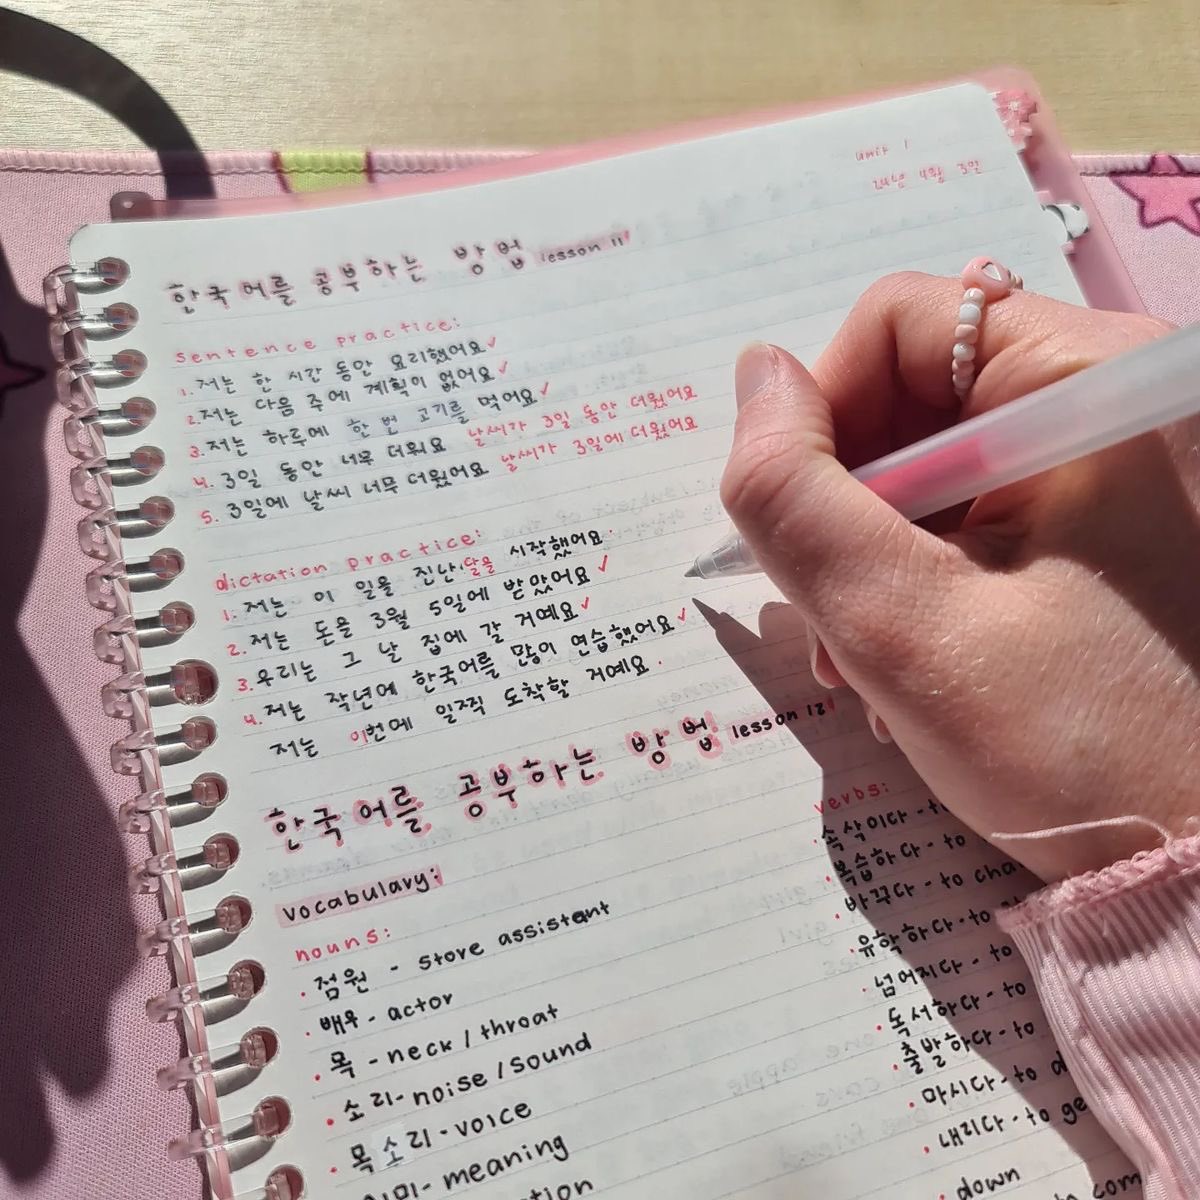 unit 1
24년 4월 3일
한국어를 공부하는 방법 lesson 11
sentence practice:
1. 저는 한 시간 동안 요리했어요 ✓
2. 저는 다음 주에 계획이 없어요 ✓
3. 저는 하루에 한 번 고기를 먹어요 ✓
4. 3일 동안 너무 더워요 날씨가 3일 동안 더웠어요
5. 3일에 날씨 너무 더웠어요 날씨가 3일에 더웠어요
dictation practice:
1. 저는 이 일을 진난 달을 시작했어요.
2. 저는 돈을 3월 5일에 받았어요 ✓
3. 우리는 그 날 집에 갈 거예요 ✓
4. 저는 작년에 한국어를 많이 연습했어요 ✓
저는 이번에 일찍 도착할 거예요.
한국어를 공부하는 방법 lesson 12
vocabulary:
nouns:
· 점원 - store assistant
· 배우 - actor
· 목 - neck / throat
· 소리 - noise / sound
· 목소리 - voice
- meaning
verbs:
· 속삭이다 -
· 복습하다 - to
· 바꾸다 - to
· 유학하다 - to
· 넘어지다 - to
· 독서하다 - to
· 출발하다 - to
· 마시다 - to
· 내리다 - to
down